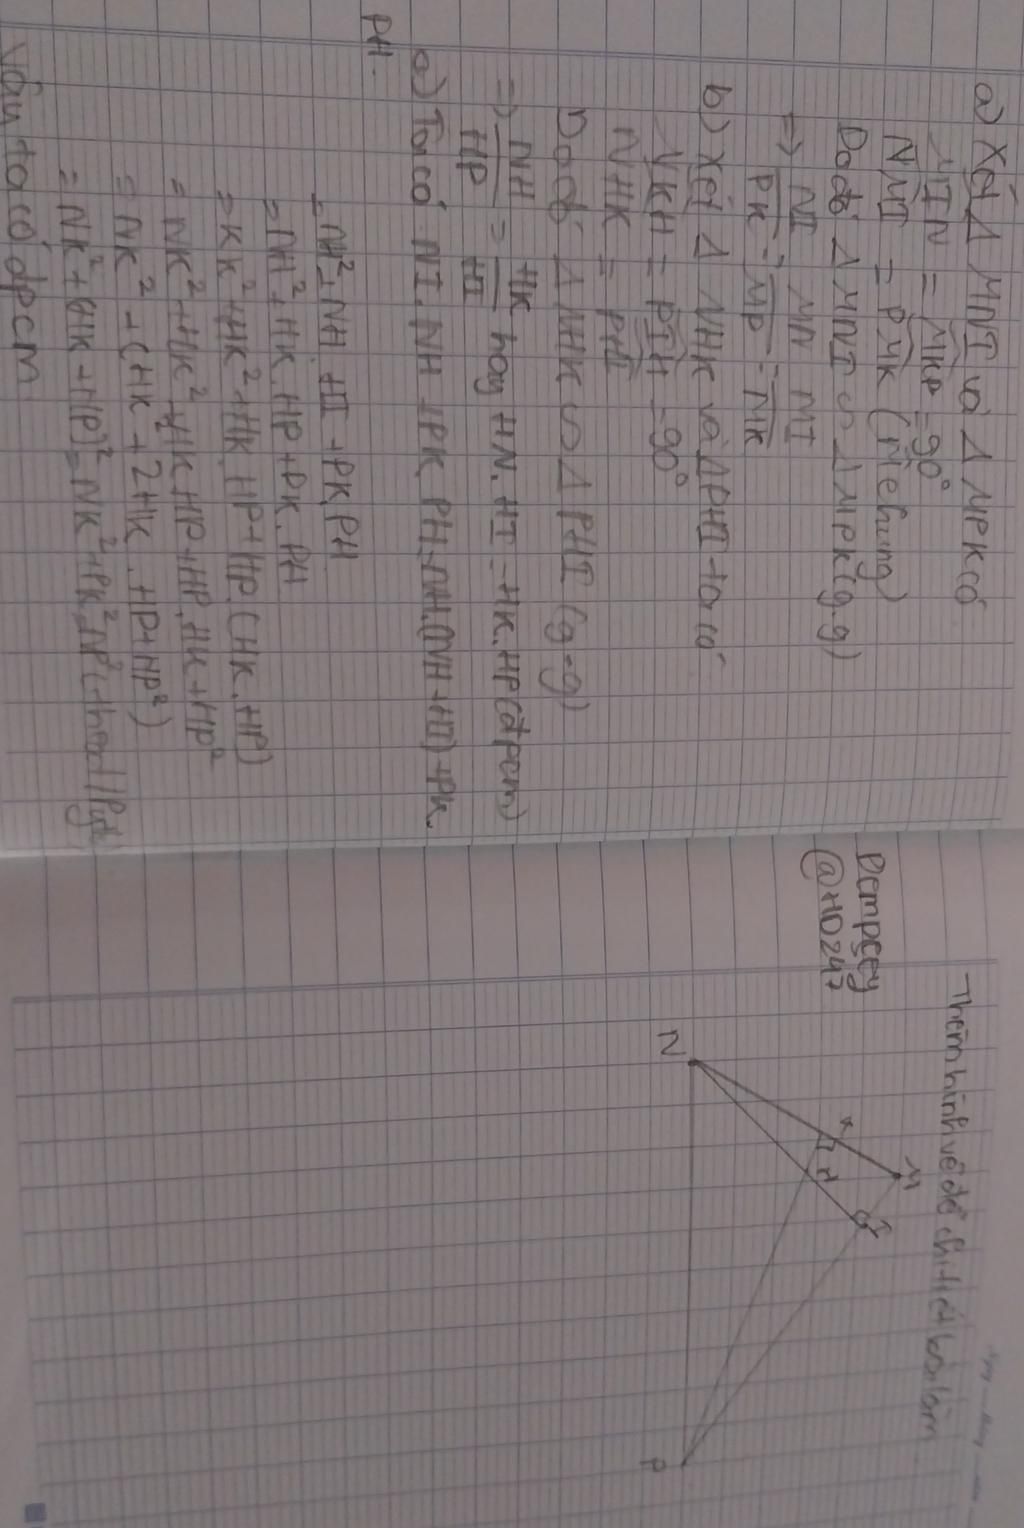 a) Xét Δ MNI và Δ MPK có
MIN = MKP = 90°
NMI = PMK (M chung)
Do đó Δ MNI ∽ Δ MPK (g.g)
=> NI/PK = MN/MP = MI/MK
b) Xét Δ NHK và Δ PHI ta có
NKH = PIH = 90°
NHK = PHI
Do đó Δ NHK ∽ Δ PHI (g-g)
=> NH/HP = HK/HI hay HN.HI = HK.HP (đpcm)
c) Ta có NI.NH + PK.PH = NH.(NH + HI) + PK.
PH.
= NH² + NH.HI + PK.PH
= NH² + HK.HP + PK.PH
= KK² + HK² + HK.HP + HP.(HK.+HP)
= NK² + HK² + HK.HP + HP.HK + HP²
= NK² + (HK + 2HK.HP + HP²)
= NK² + (HK + HP)² = NK² + PK² = NP²
Vậy ta có đpcm
Thêm hình vẽ để chi tiết bài làm
@HD247
M
K
H
I
N
P